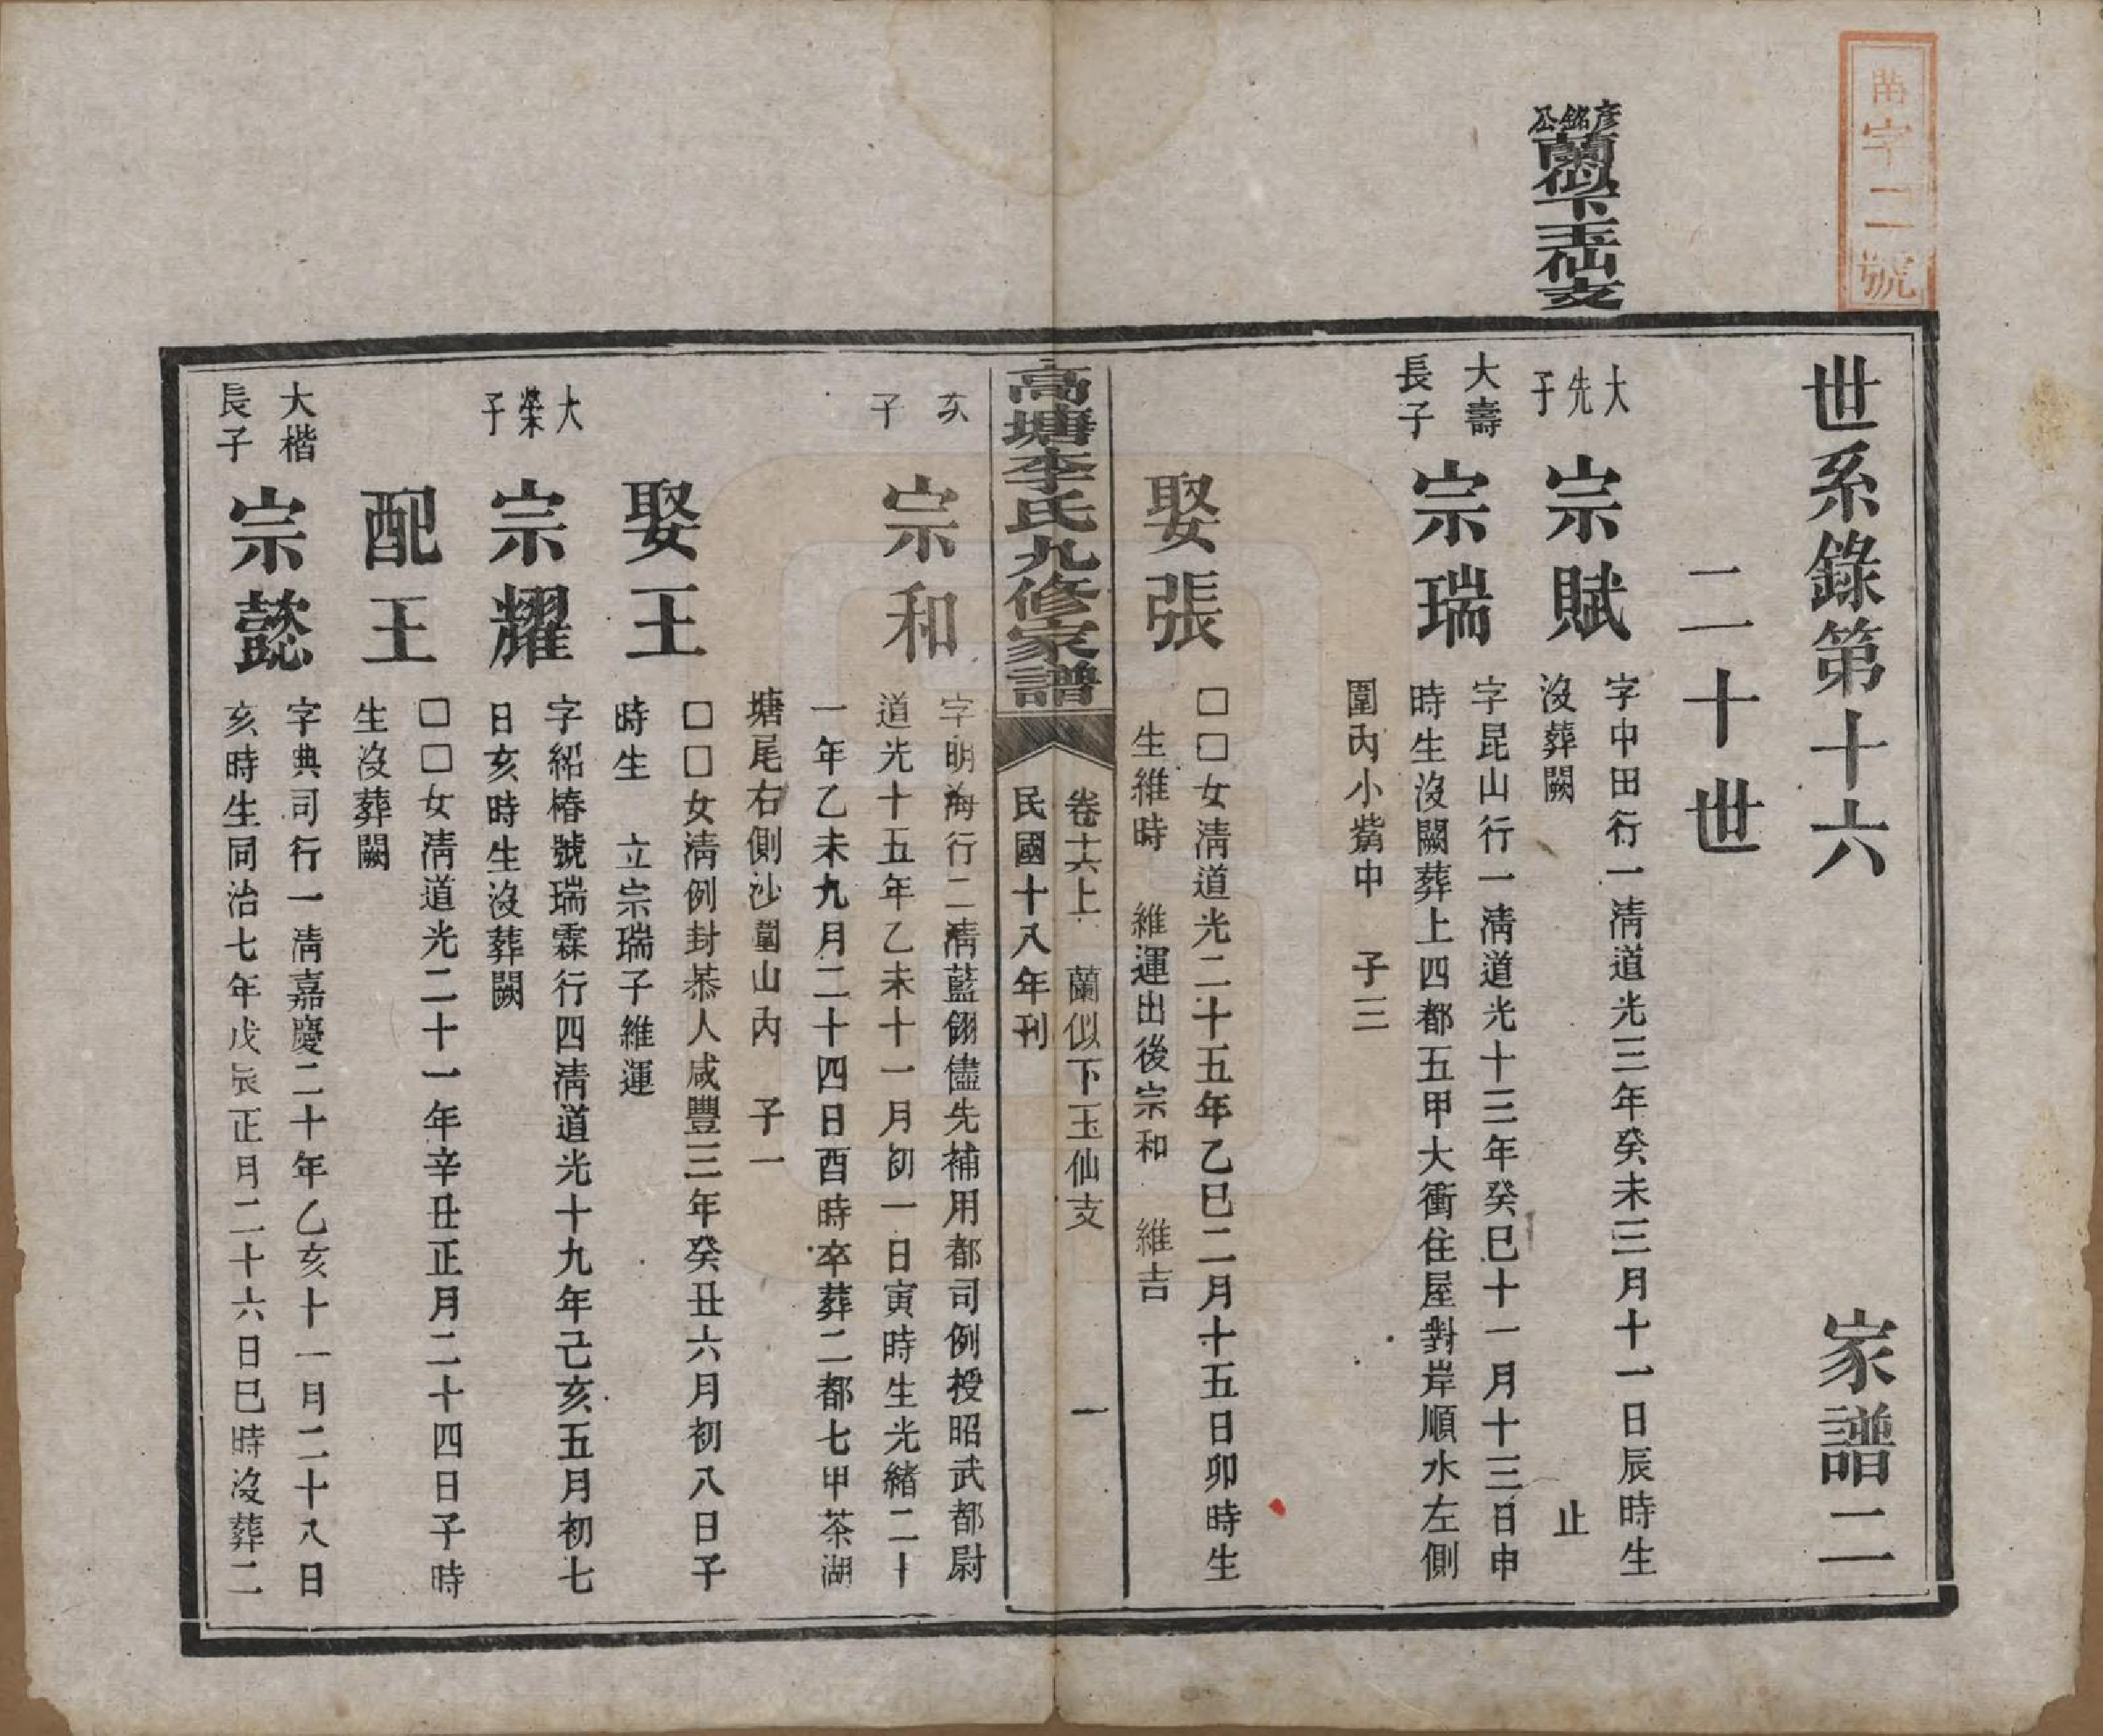 字二號
彥銘公
蘭似下玉仙支
世系錄第十六　家譜二
二十世
大先子
宗賦
字中田行一淸道光三年癸未三月十一日辰時生
沒葬闕　止
大壽長子
宗瑞
字昆山行一淸道光十三年癸巳十一月十三日申
時生沒闕葬上四都五甲大衝住屋對岸順水左側
圍內小觜中　子三
娶張
□□女淸道光二十五年乙巳二月十五日卯時生
生維時　維運出後宗和　維吉
高塘李氏九修家譜
卷十六上　蘭似下玉仙支　一
民國十八年刊
次子
宗和
字明海行二淸藍翎儘先補用都司例授昭武都尉
道光十五年乙未十一月初一日寅時生光緒二十
一年乙未九月二十四日酉時卒葬二都七甲茶湖
塘尾右側沙圍山內　子一
娶王
□□女淸例封恭人咸豐三年癸丑六月初八日子
時生　立宗瑞子維運
大榮子
宗耀
字紹椿號瑞霖行四淸道光十九年己亥五月初七
日亥時生沒葬闕
配王
□□女淸道光二十一年辛丑正月二十四日子時
生沒葬闕
大楷長子
宗懿
字典司行一淸嘉慶二十年乙亥十一月二十八日
亥時生同治七年戊辰正月二十六日巳時沒葬二